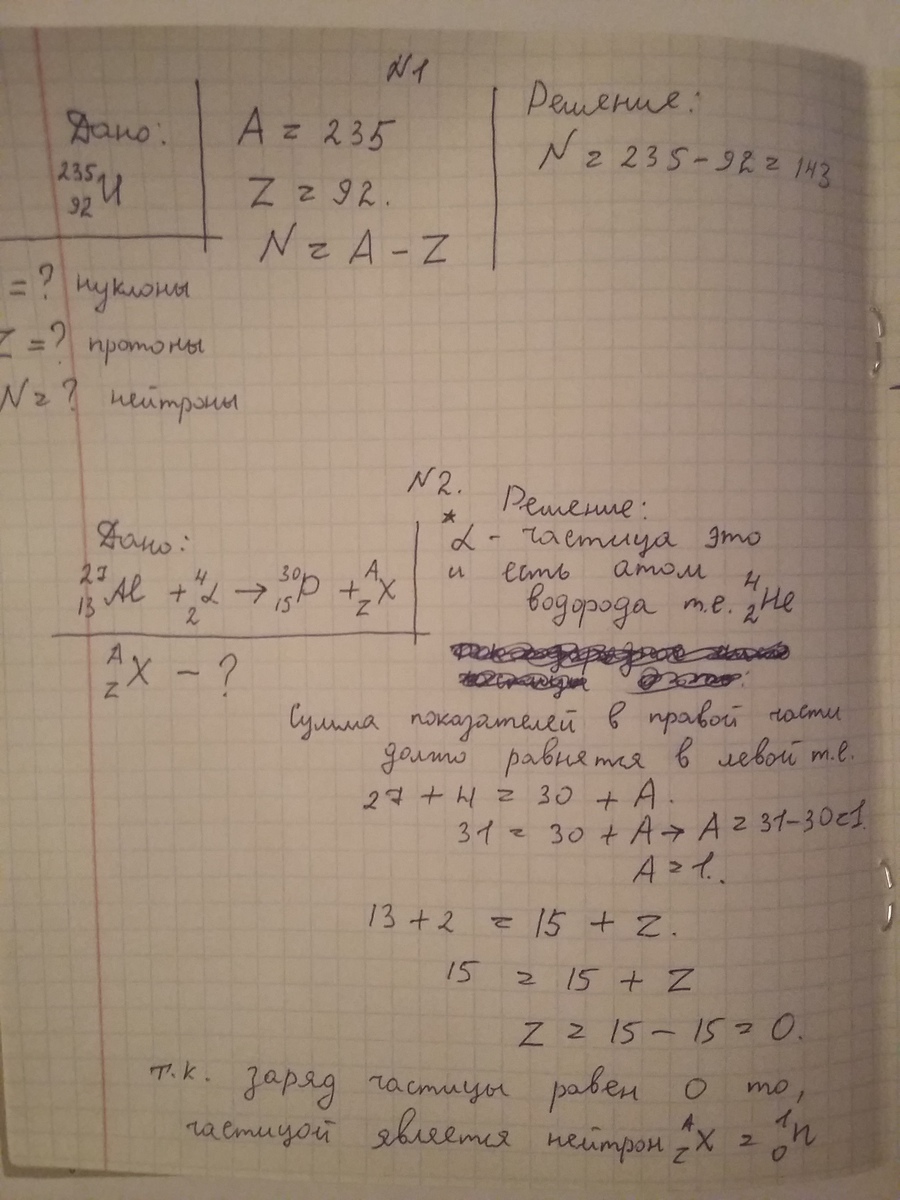 N1
Дано:
²³⁵₉₂U
= ? нуклоны
Z = ? протоны
N = ? нейтроны
A = 235
Z = 92.
N = A - Z
Решение:
N = 235 - 92 = 143
N2.
Дано:
²⁷₁₃Al + ⁴₂α → ³⁰₁₅P + ᴬ_ZX
ᴬ_ZX - ?
Решение:
*
α - частица это
и есть атом
водорода т.е. ⁴₂He
Сумма показателей в правой части
долго равнятся в левой т.е.
27 + 4 = 30 + A.
31 = 30 + A → A = 31-30=1.
A = 1.
13 + 2 = 15 + Z.
15 = 15 + Z
Z = 15 - 15 = 0.
т.к. заряд частицы равен 0 то,
частицой является нейтрон ᴬ_ZX = ¹₀n